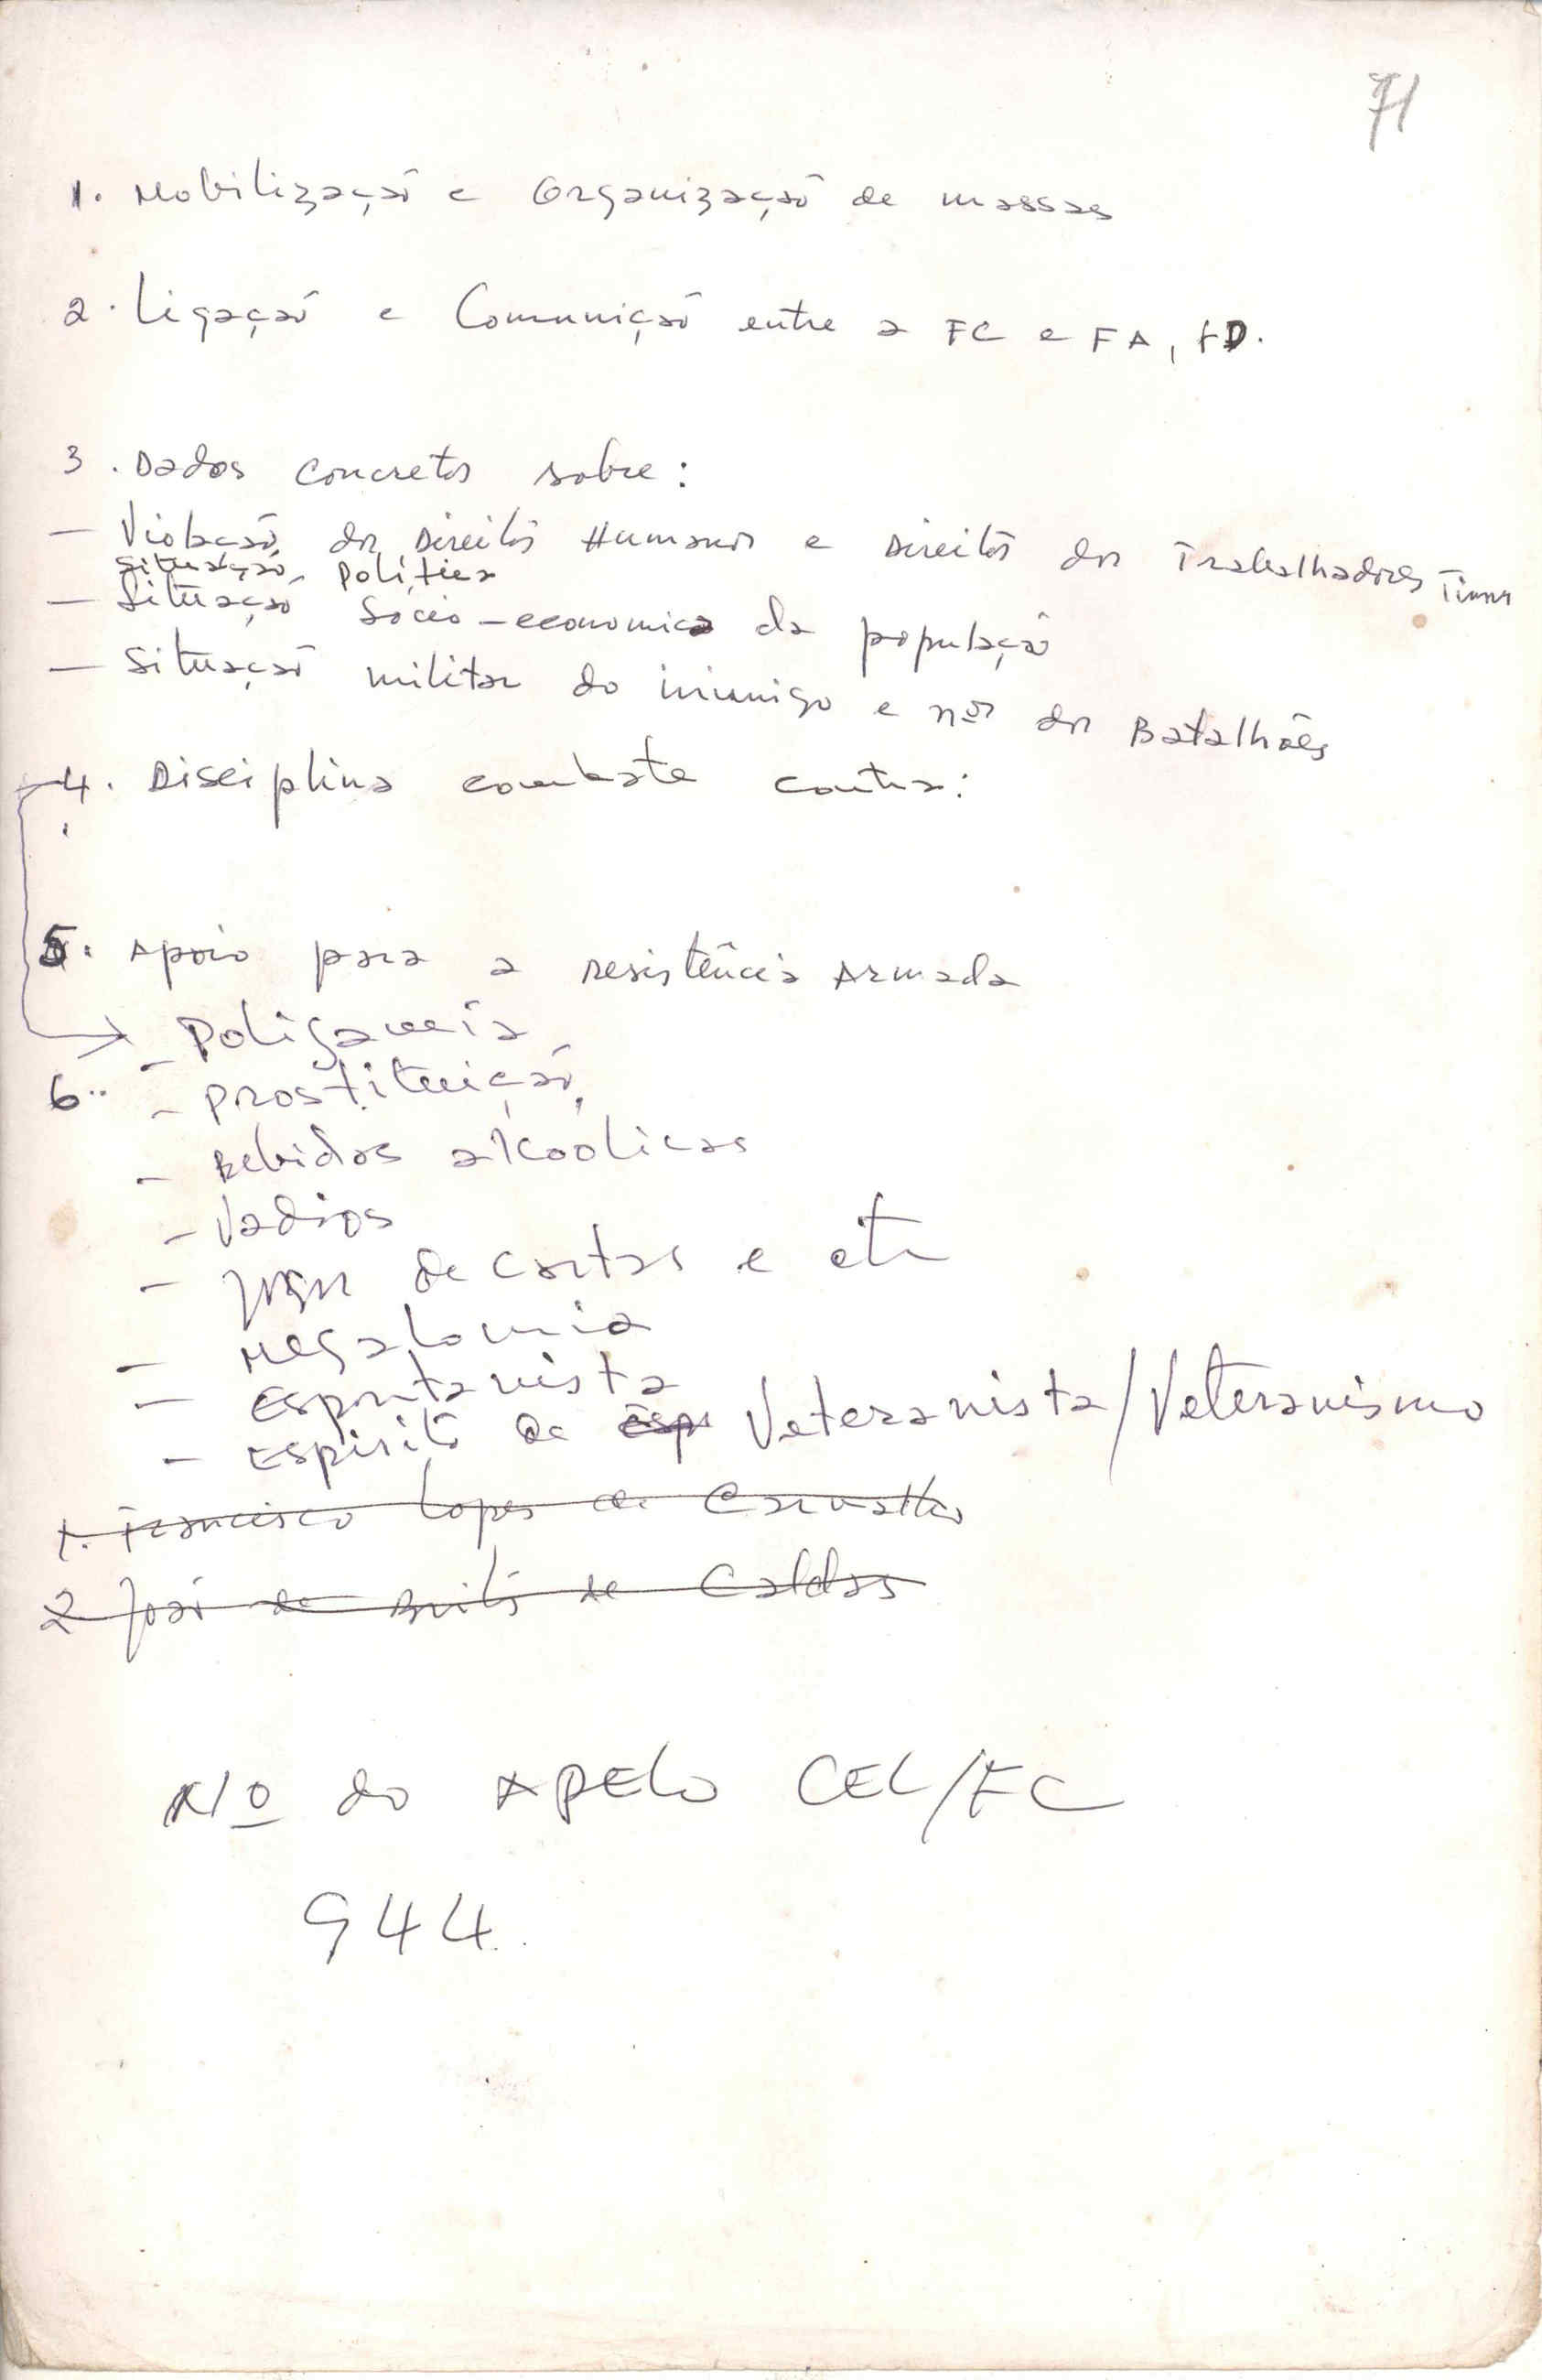 71
1. Mobilização e Organização de massas
2. Ligação e Comunição entre a FC e FA, FD.
3. Dados concretos sobre:
– Violação dos Direitos Humanos e Direitos dos Trabalhadores Timor
Situação Política
– Situação Sócio-economica da população
– Situação militar do inimigo e nºs dos Batalhões
4. Disciplina combate contra:
5. Apoio para a resistência Armada
– Poligamia
6. – Prostituição
– Bebidas alkoólicas
– Vadios
– Jogos de cartas e etc
– Megalomia
– Espontanista
– Espirito de Veteranista/Veteranismo
1. Francisco Lopes de Carvalho
2 João de Brito de Caldas
Nº do APELO CEL/FC
944